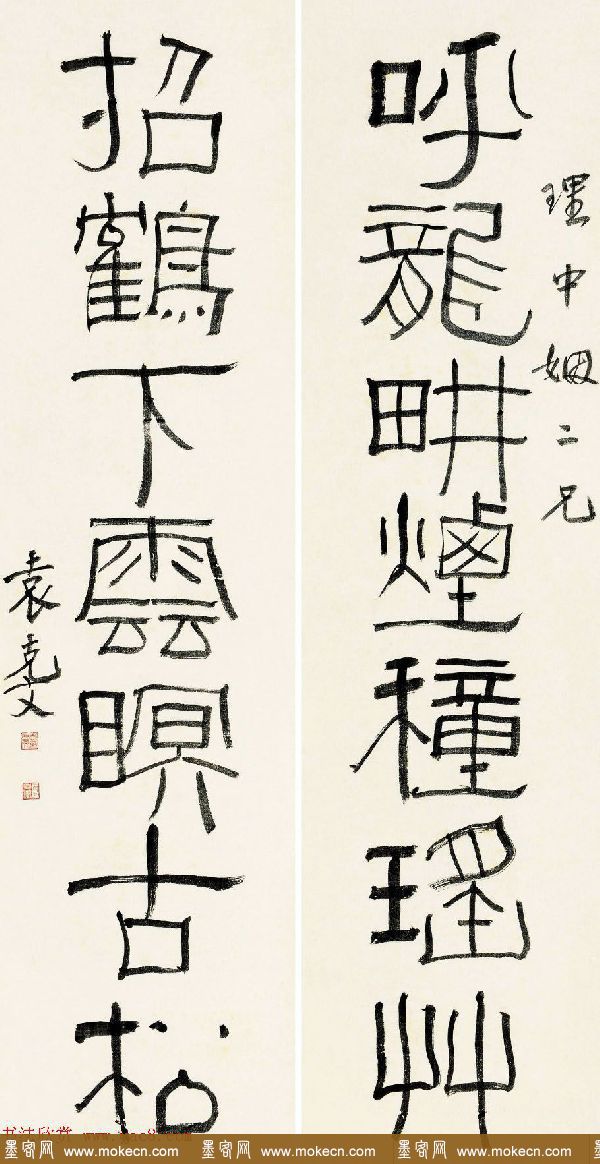 理中姻二兄
呼龍畊煙穜瑤艸
招鶴下雲瞑古松
袁克文
墨客网 www.mokecn.com 墨客网 www.mokecn.com 墨客网 www.mokecn.com